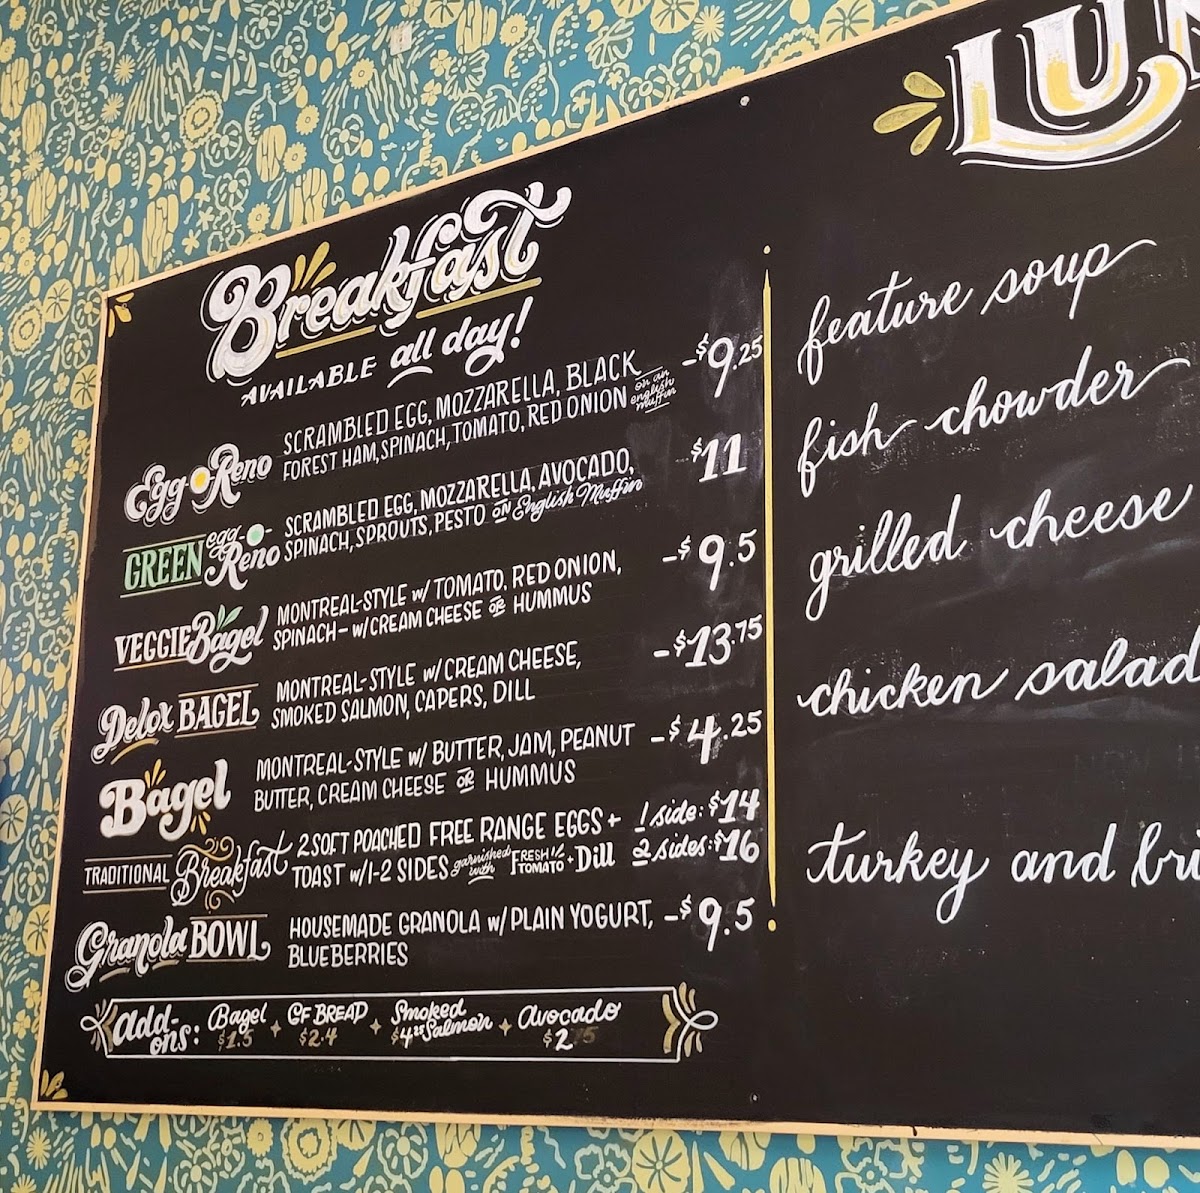 Breakfast
AVAILABLE all day!
Egg Reno
SCRAMBLED EGG, MOZZARELLA, BLACK
FOREST HAM, SPINACH, TOMATO, RED ONION on an english muffin
-$9.25
GREEN egg Reno
SCRAMBLED EGG, MOZZARELLA, AVOCADO,
SPINACH, SPROUTS, PESTO ON English Muffin
-$11
VEGGIE Bagel
MONTREAL-STYLE w/ TOMATO, RED ONION,
SPINACH - w/ CREAM CHEESE OR HUMMUS
-$9.5
Delox BAGEL
MONTREAL-STYLE w/ CREAM CHEESE,
SMOKED SALMON, CAPERS, DILL
-$13.75
Bagel
MONTREAL-STYLE w/ BUTTER, JAM, PEANUT
BUTTER, CREAM CHEESE OR HUMMUS
-$4.25
TRADITIONAL Breakfast
2 SOFT POACHED FREE RANGE EGGS +
TOAST w/ 1-2 SIDES garnished with FRESH TOMATO + Dill
1 side: $14
2 sides: $16
Granola BOWL
HOUSEMADE GRANOLA w/ PLAIN YOGURT,
BLUEBERRIES
-$9.5
Add-ons: Bagel $1.5 + GF BREAD $2.4 + Smoked Salmon $4.25 + Avocado $2.75
LUN
feature soup
fish chowder
grilled cheese
chicken salad
turkey and bri